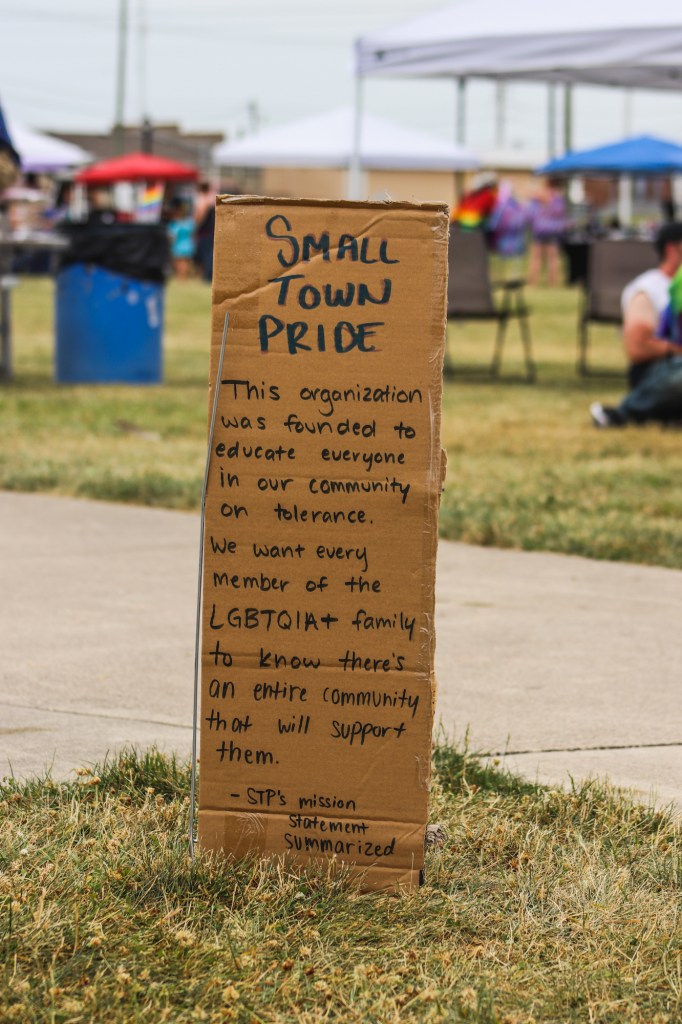 SMALL
TOWN
PRIDE
This organization
was founded to
educate everyone
in our community
on tolerance.
We want every
member of the
LGBTQIA+ family
to know there's
an entire community
that will support
them.
- STP's mission
statement
summarized